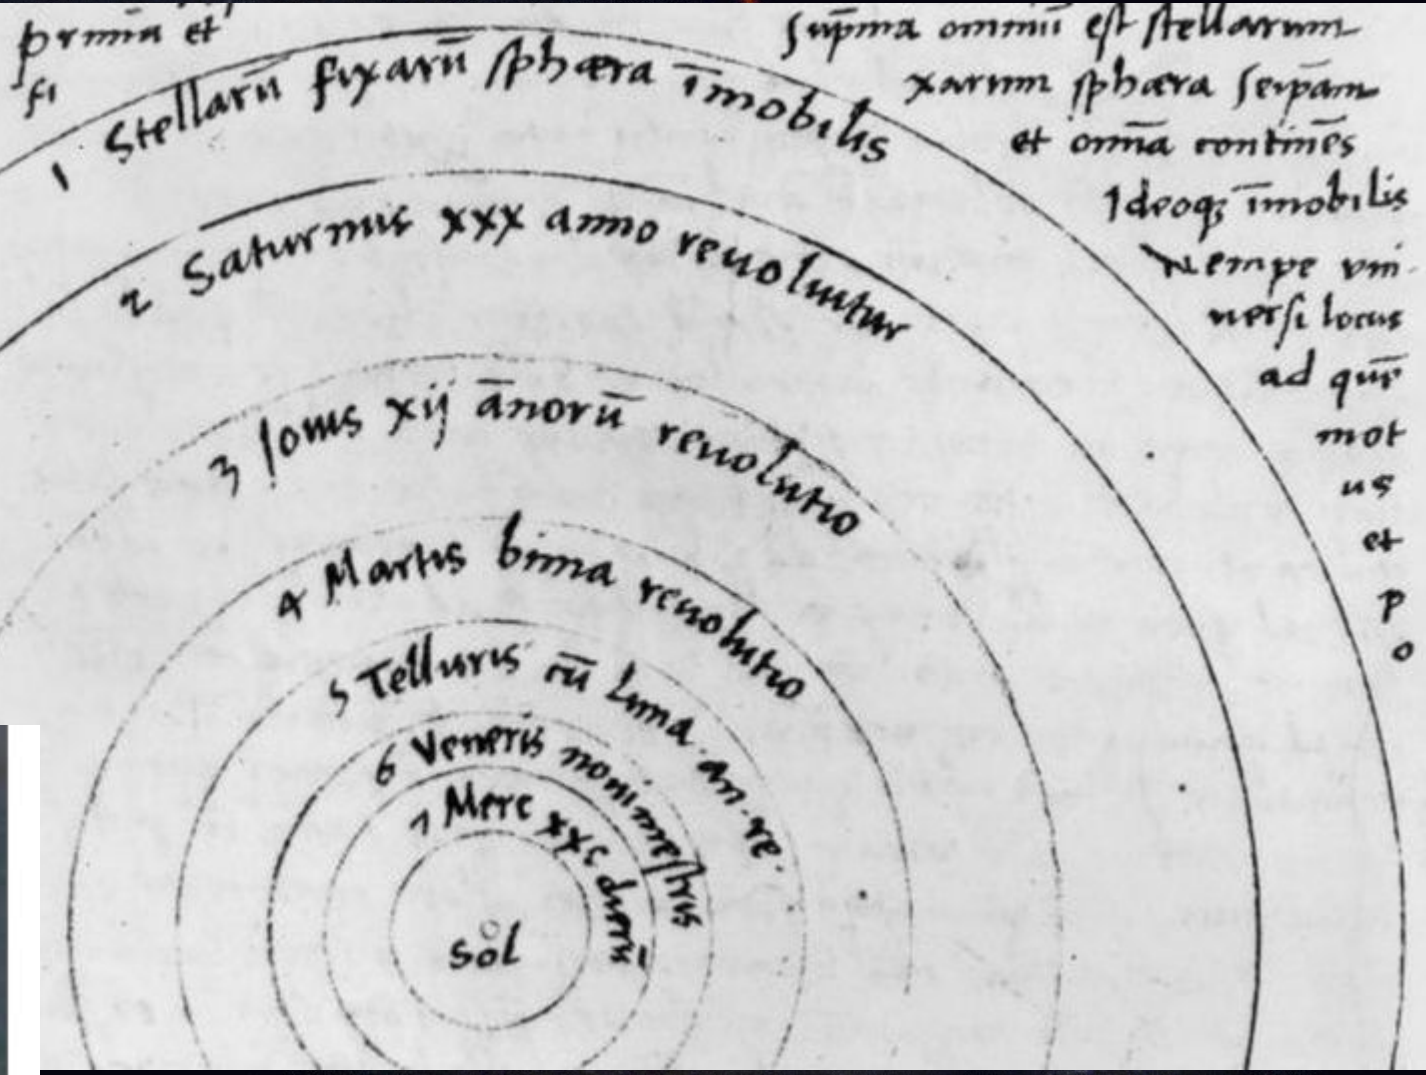 prima et
fi
sup̄ma omniū est stellarum
xarum sphæra seip̄am
et om̄ia continēs
Ideoqꝫ īmobilis
Nempe vni
uersi locus
ad quē
mot
us
et
p
o
1 Stellarū fixarū sphæra īmobilis
2 Saturnus xxx anno reuoluitur
3 Iouis xij ānorū reuolutio
4 Martis bima reuolutio
5 Telluris cū luna · an · re ·
6 Veneris nonimestris
7 Merc xxc dierū
Sol